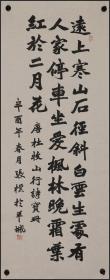 遠上寒山石徑斜白雲生處有
人家停車坐愛楓林晚霜葉
紅於二月花 唐杜牧山行詩
辛酉年春月張於羊城